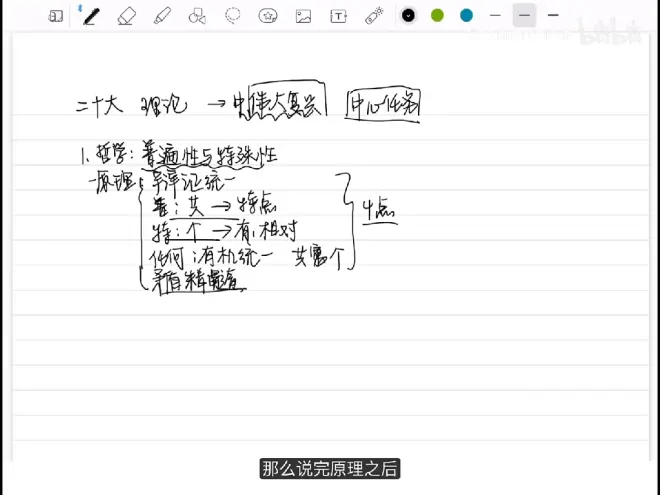 二十大 理论 → 中伟大复兴 中心任务
1. 哲学：普遍性与特殊性
原理： 辩证统一
普：共 → 特点
特：个 → 有，相对
4点
任何：有机统一 共寓个
矛盾
那么说完原理之后